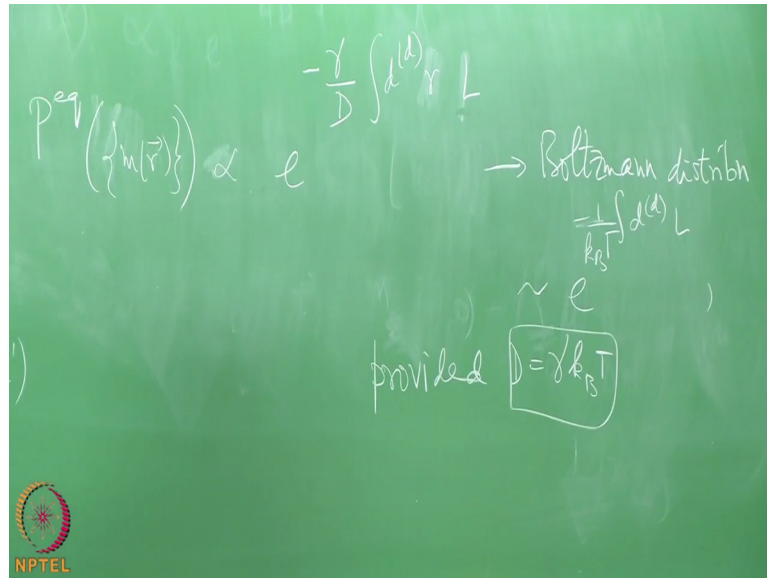 P^{eq}({m(\vec{r})}) ∝ e^{-\frac{γ}{D} ∫ d^{(d)}r L}
→ Boltzmann distribn
~ e^{-\frac{1}{k_B T} ∫ d^{(d)} L} )
')
provided D = γ k_B T
NPTEL